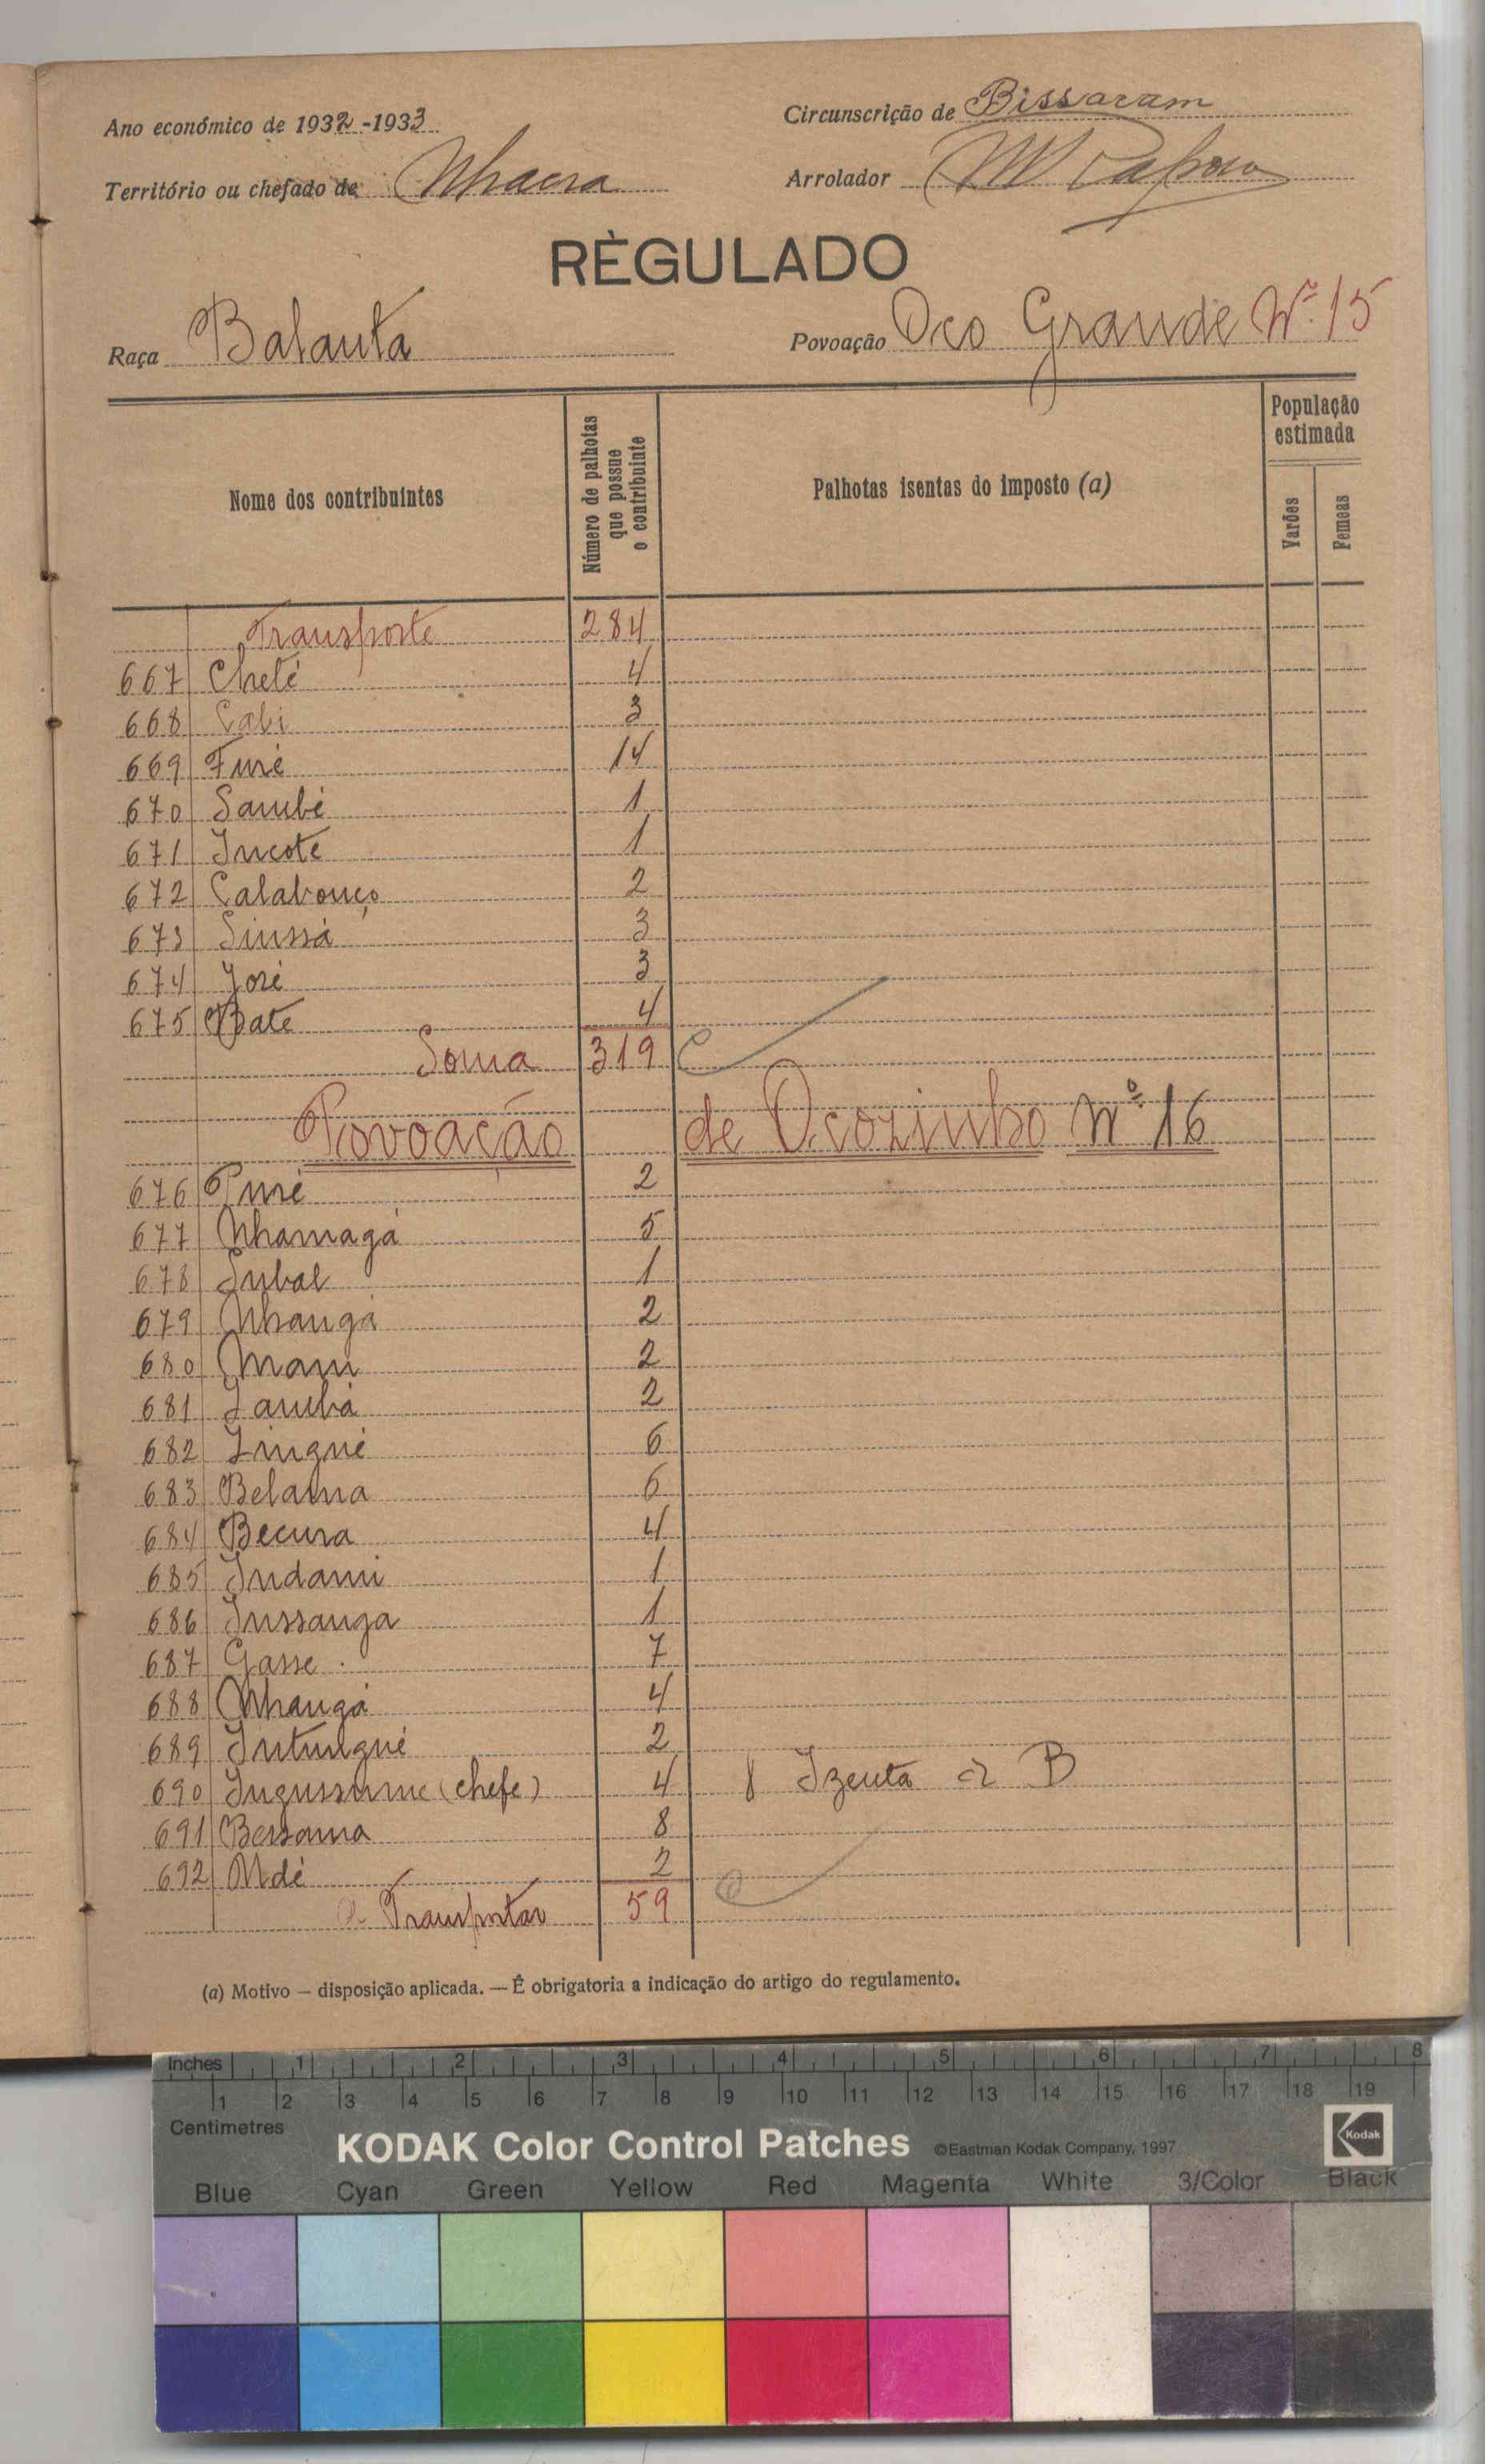 Ano económico de 1932-1933
Circunscrição de Bissoram
Território ou chefado de Nhacra
Arrolador
RÈGULADO
Raça Balanta
Povoação Oco Grande Nº 15
Nome dos contribuintes
Número de palhotas que possue o contribuinte
Palhotas isentas do imposto (a)
População estimada
Varões
Femeas
Transporte 284
667 Cheté 4
668 Cabi 3
669 Funé 14
670 Sambé 1
671 Incote 1
672 Calabouço 2
673 Sinssá 3
674 José 3
675 Bate 4
Soma 319
Povoação de Ocozinho Nº 16
676 2
677 Nhamagá 5
678 Subal 1
679 Nhangá 2
680 Mam 2
681 Zambá 2
682 Zingué 6
683 Belama 6
684 Becura 4
685 Indami 1
686 Inssanga 1
687 Gasse 7
688 Nhangá 4
689 Intungué 2
690 (chefe) 4 Izenta B
691 Bessama 8
692 Ndé 2
A Transportar 59
(a) Motivo — disposição aplicada. — É obrigatoria a indicação do artigo do regulamento.
Inches 1 2 3 4 5 6 7 8
1 2 3 4 5 6 7 8 9 10 11 12 13 14 15 16 17 18 19
Centimetres
KODAK Color Control Patches ©Eastman Kodak Company, 1997 Kodak
Blue Cyan Green Yellow Red Magenta White 3/Color Black